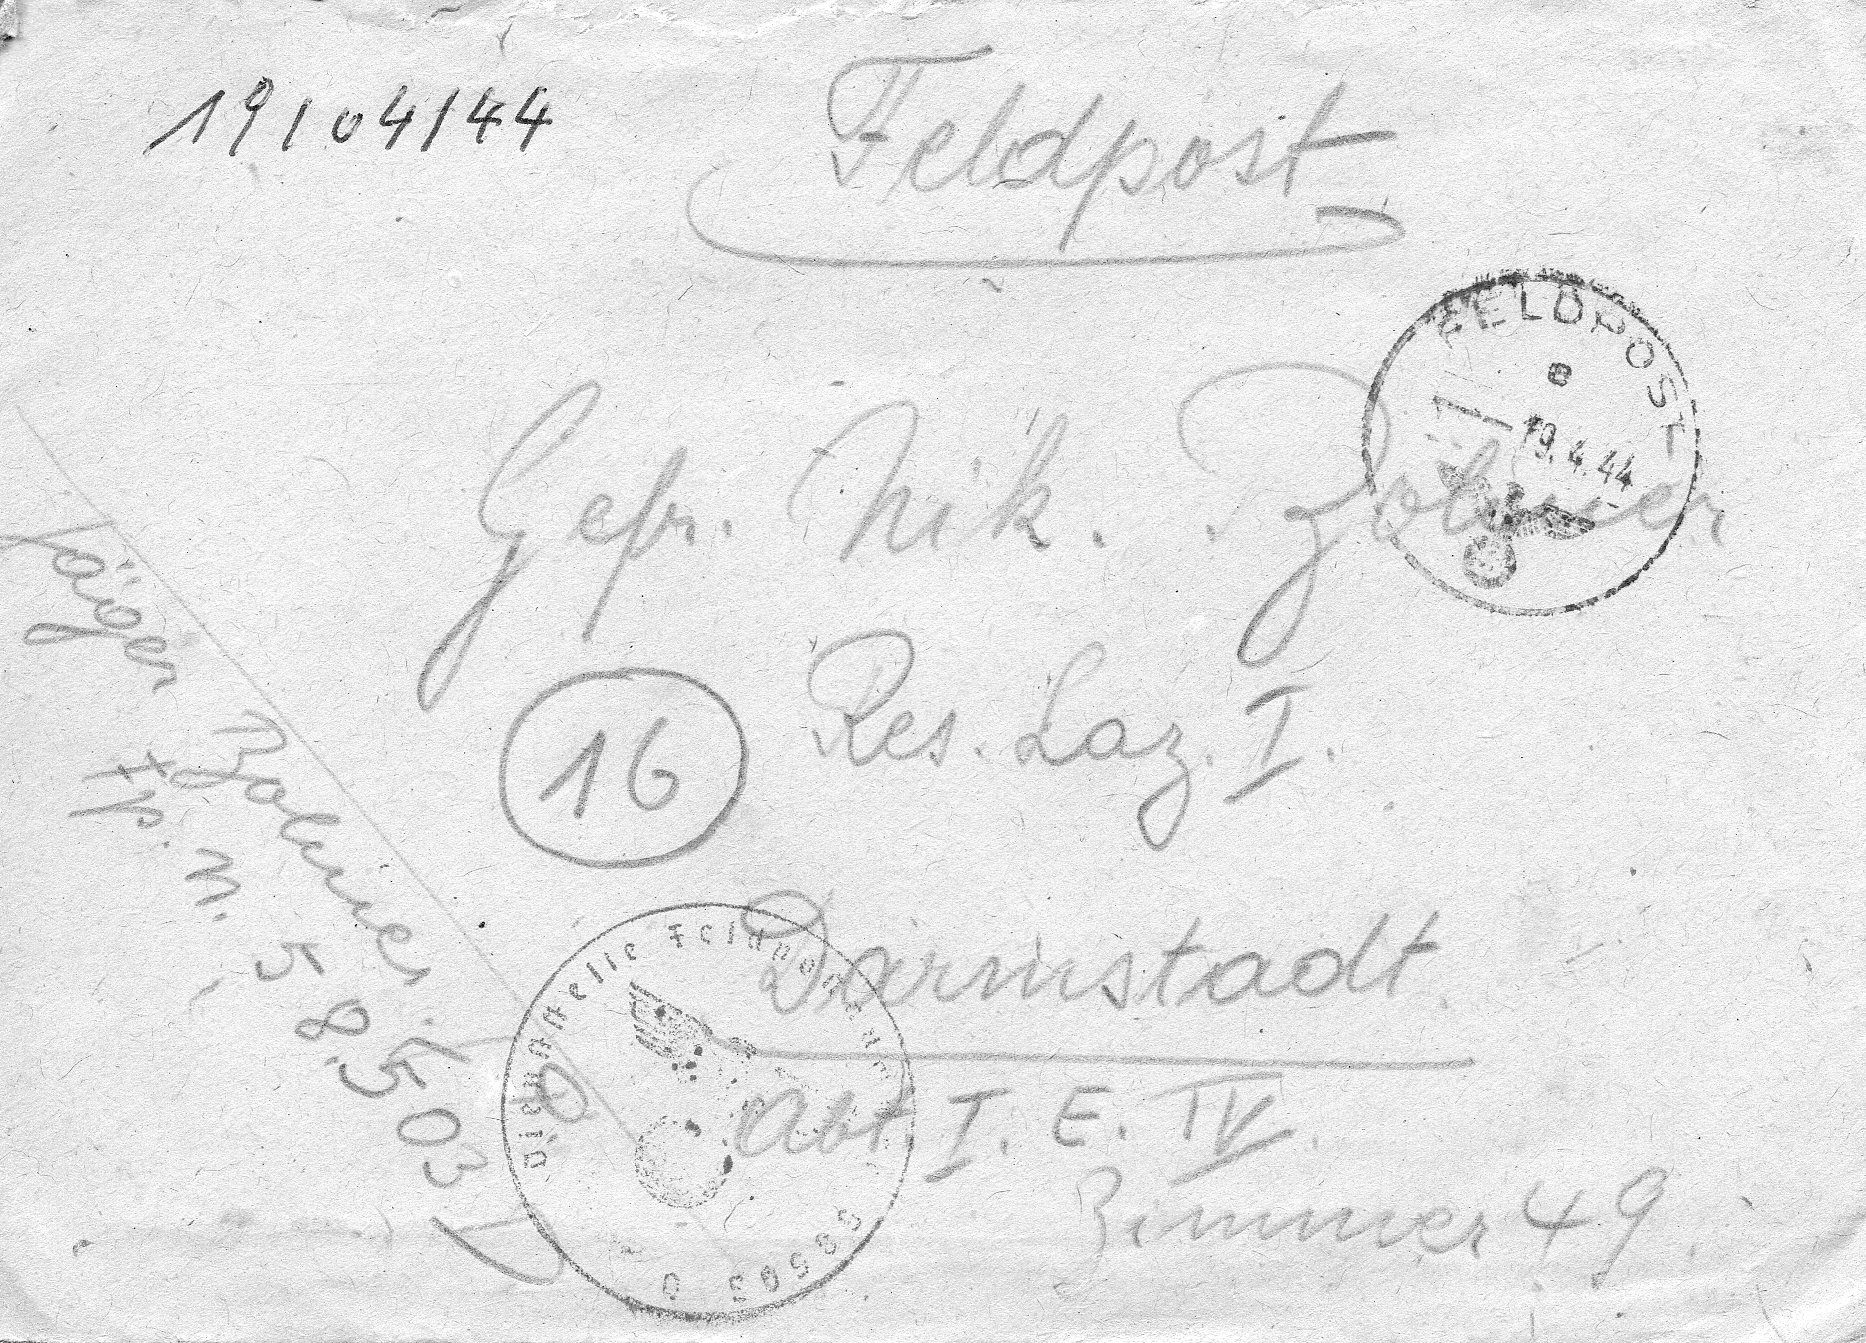 19/04/44
Feldpost
FELDPOST
e
19.4.44
Gefr. Nik.
16
Res. Laz. I.
Darmstadt.
Abt. I. E. IV.
Zimmer 49.
Jäger
Fp. N. 58503 D
Dienststelle Feldpostnummer
58503 D